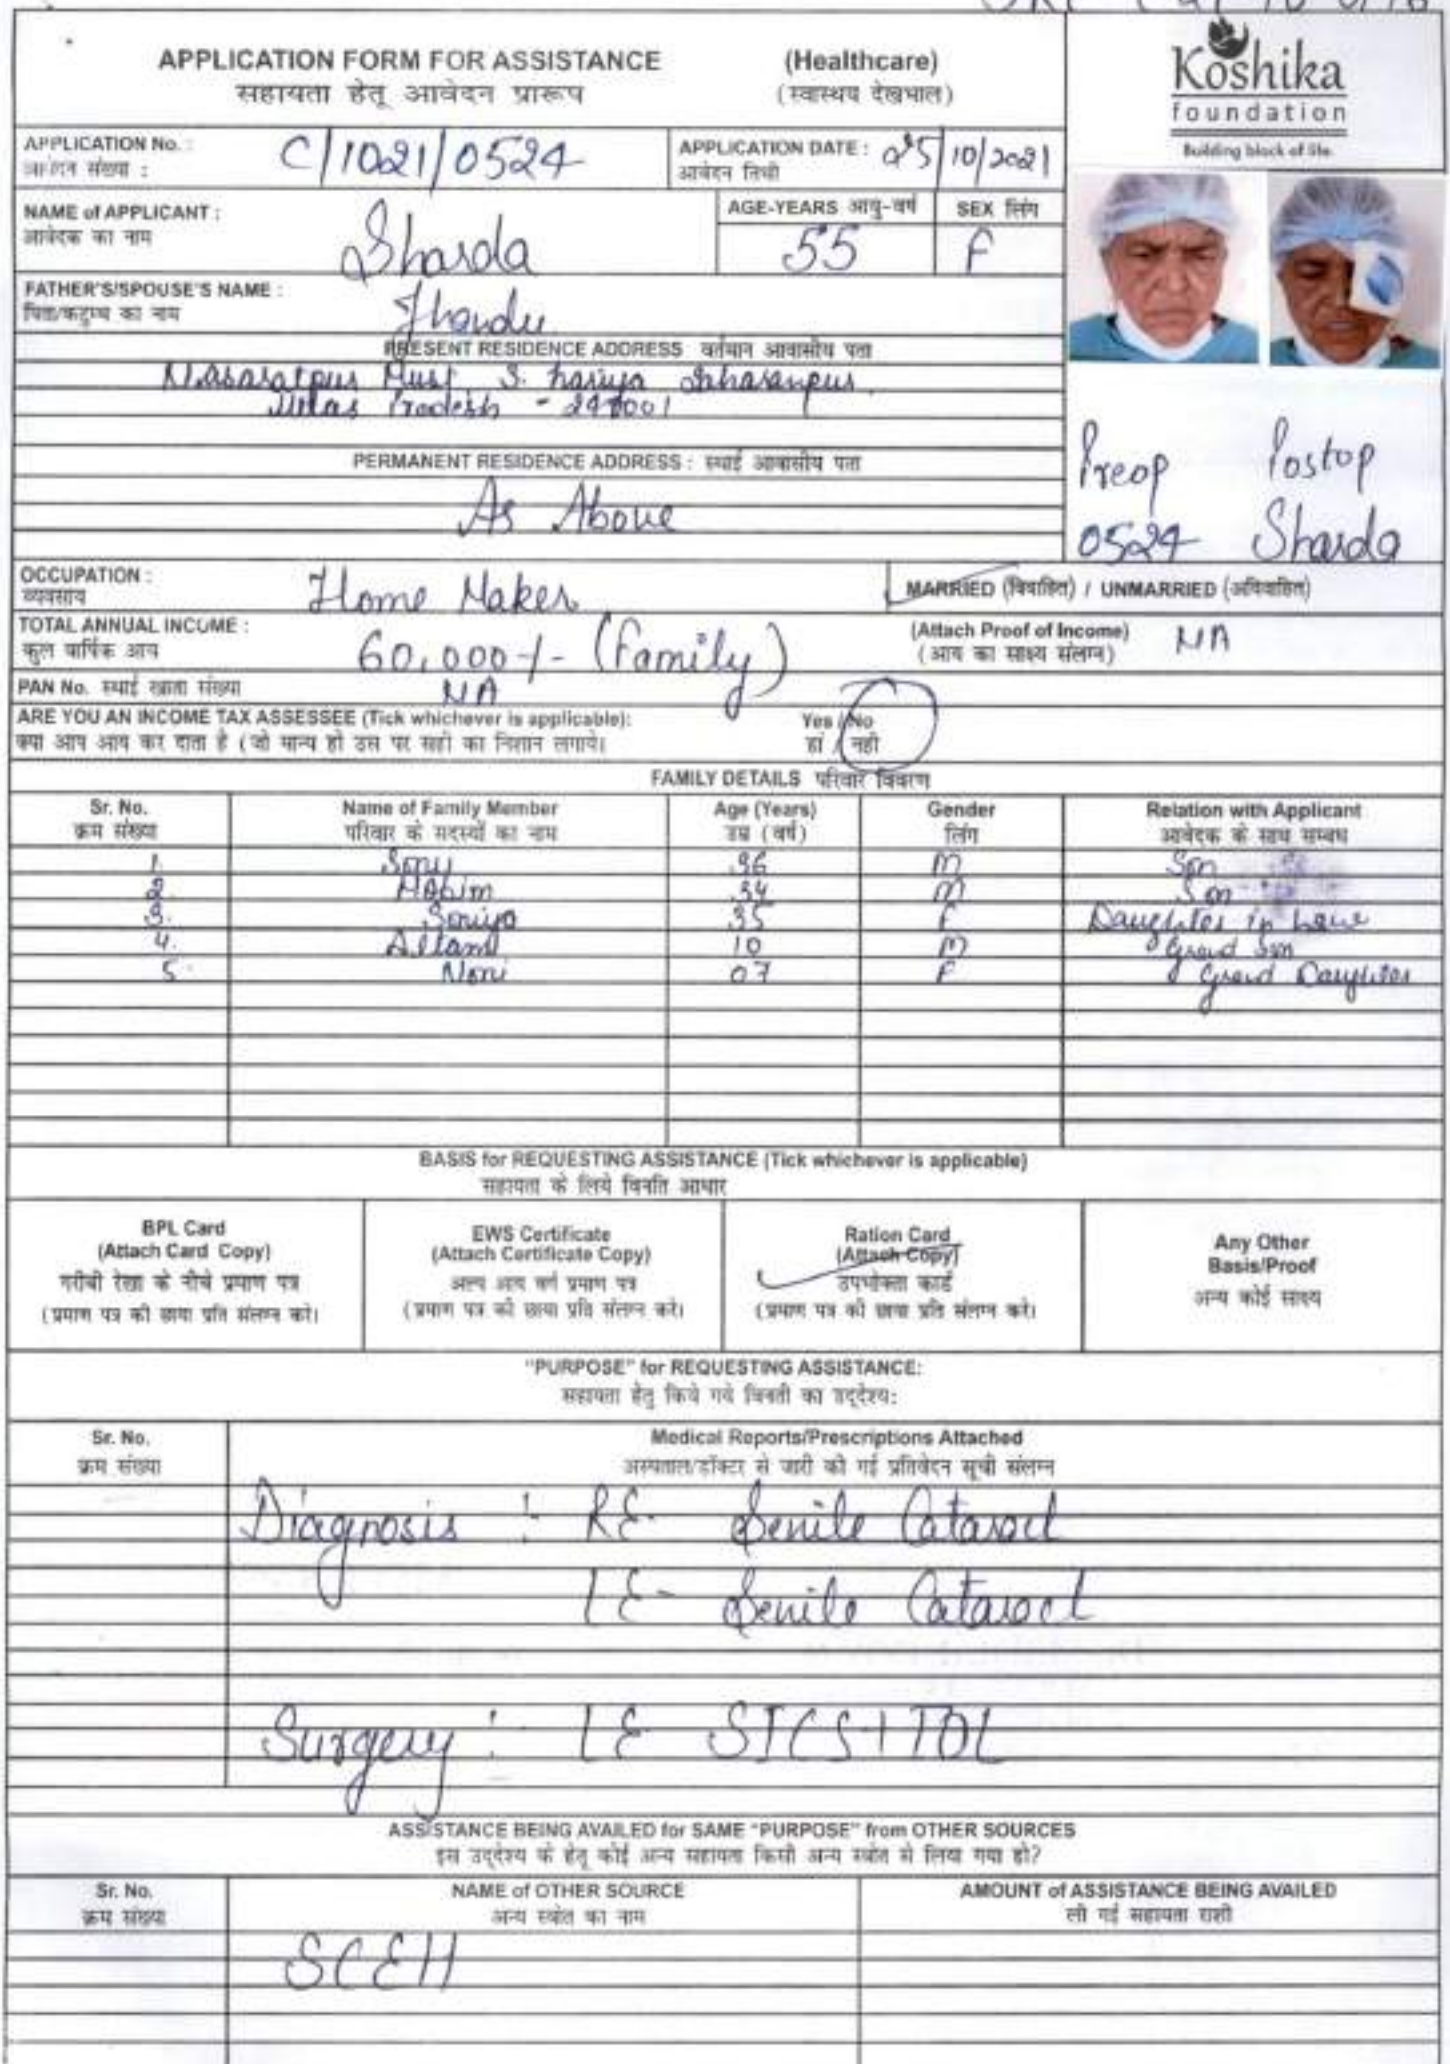 APPLICATION FORM FOR ASSISTANCE (Healthcare)
सहायता हेतू आवेदन प्रारूप (स्वास्थय देखभाल)
Koshika
foundation
Building block of life.
APPLICATION No. : C/1021/0524 APPLICATION DATE : 25/10/2021
आवेदन संख्या : आवेदन तिथी
NAME of APPLICANT : Sharda AGE-YEARS आयु-वर्ष 55 SEX लिंग F
आवेदक का नाम
FATHER'S/SPOUSE'S NAME : Jhandu
पिता/कटुम्ब का नाम
PRESENT RESIDENCE ADDRESS वर्तमान आवासीय पता
Saharanpur
Uttar Pradesh - 247001
PERMANENT RESIDENCE ADDRESS : स्थाई आवासीय पता
As Above
Preop Postop
0524 Sharda
OCCUPATION : Home Maker MARRIED (विवाहित) / UNMARRIED (अविवाहित)
व्यवसाय
TOTAL ANNUAL INCOME : 60,000/- (Family) (Attach Proof of Income) NA
कुल वार्षिक आय (आय का साक्ष्य संलग्न)
PAN No. स्थाई खाता संख्या NA
ARE YOU AN INCOME TAX ASSESSEE (Tick whichever is applicable): Yes / No
क्या आप आय कर दाता है (जो मान्य हो उस पर सही का निशान लगाये। हां / नही
FAMILY DETAILS परिवार विवरण
Sr. No. Name of Family Member Age (Years) Gender Relation with Applicant
क्रम संख्या परिवार के सदस्यों का नाम उम्र (वर्ष) लिंग आवेदक के साथ सम्बंध
1. Sonu 36 M Son
2. 34 M Son
3. 35 F Daughter in Lawe
4. 10 M Grand Son
5. Noni 07 F Grand Daughter
BASIS for REQUESTING ASSISTANCE (Tick whichever is applicable)
सहायता के लिये विनति आधार
BPL Card
(Attach Card Copy)
गरीबी रेखा के नीचे प्रमाण पत्र
(प्रमाण पत्र की छाया प्रति संलग्न करे।
EWS Certificate
(Attach Certificate Copy)
अल्प आय वर्ग प्रमाण पत्र
(प्रमाण पत्र की छाया प्रति संलग्न करे।
Ration Card
(Attach Copy)
उपभोक्ता कार्ड
(प्रमाण पत्र की छाया प्रति संलग्न करे।
Any Other
Basis/Proof
अन्य कोई साक्ष्य
"PURPOSE" for REQUESTING ASSISTANCE:
सहायता हेतु किये गये विनती का उद्देश्य:
Sr. No. Medical Reports/Prescriptions Attached
क्रम संख्या अस्पताल/डॉक्टर से जारी की गई प्रतिवेदन सूची संलग्न
Diagnosis :- RE- Senile Cataract
LE- Senile Cataract
Surgery : LE SICS+IOL
ASSISTANCE BEING AVAILED for SAME "PURPOSE" from OTHER SOURCES
इस उद्देश्य के हेतू कोई अन्य सहायता किसी अन्य स्त्रोत से लिया गया हो?
Sr. No. NAME of OTHER SOURCE AMOUNT of ASSISTANCE BEING AVAILED
क्रम संख्या अन्य स्त्रोत का नाम ली गई सहायता राशी
SCEH